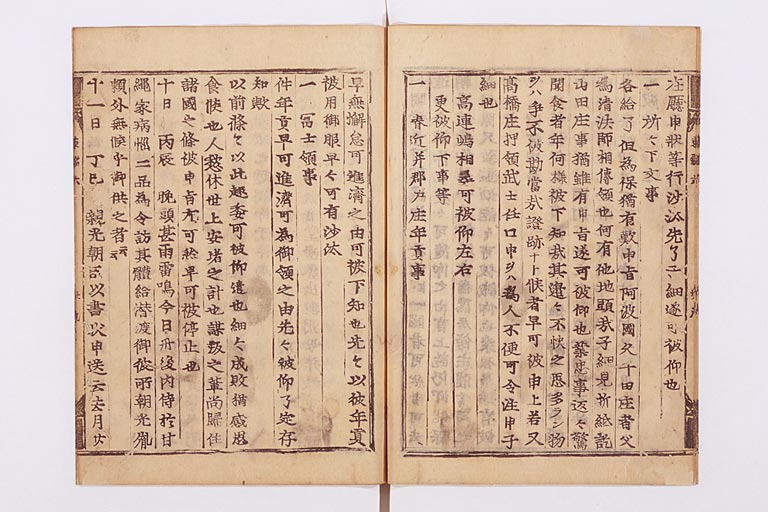 在廳申狀等行沙汰先了子細遂可被仰也
一 所々下文事
各給了但為保猶有歎申旨阿波國久千田庄者父
為清法師相傳領也何有他地頭哉子細見折紙訖
山田庄事猶雖有申旨遂可被仰也 事返々驚
聞食者年何様被下知哉其邊々不快之恩多ラン物
ヲハ争不被勘當哉證跡ナト候者早可被申上若又
高橋庄押領武士任口申ヲハ為人不便可令注申子
細也
高連嶋相 可被仰左右
更被仰下事等
一 春近并郡戸庄年貢事
早無懈怠可進濟之由可被下知也先々以彼年貢
被用御服早々可有沙汰
一 冨士領事
件年貢早可進濟可為御領之由先々被仰了定存
知歟
以前條々以此趣委可被仰遣也細々成敗猶感思
食候也人愁休世上安堵之計也謀叛之輩尚歸住
諸國之條被申旨尤可然早可被停止也
十日 丙辰 晩頭甚雨雷鳴今日丹後内侍於甘
繩家病惱二品為令訪其體給潜渡御彼所朝光胤
頼外無候于御供之者云云
十一日 丁巳 親光朝臣以書狀申送云去月廿